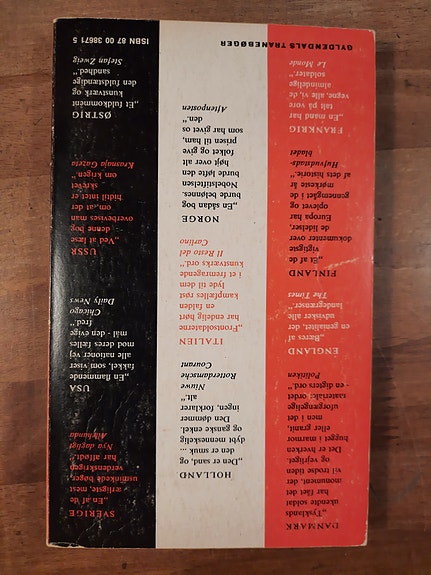 DANMARK
„Tysklands
ukendte soldat
har fået det
monument, der
vil trodse tiden
og vejrliget.
Det er hverken
hugget i marmor
eller granit,
men i det
uforgængelige
materiale: ordet
- en digters ord.“
Politiken
ENGLAND
„Bæres af
en genialitet, der
udvisker alle
landegrænser.“
The Times
FINLAND
„Et af de
vigtigste
dokumenter over
de lidelser,
Europa har
oplevet
gennemgået i de
mørkeste år
af dets historie.“
Hufvudstads-
bladet
FRANKRIG
„En mand har
talt på vore
vegne, alle vi, de
almindelige
soldater.“
Le Monde
HOLLAND
„Den er sand, og
den er smuk ...
dybt menneskelig
og ganske enkel.
Den dømmer
ingen, forklarer
alt.“
Nieuwe
Rotterdamsche
Courant
ITALIEN
„Frontsoldaterne
har endelig hørt
en falden
kampfælles røst
lyde til dem
i et fremragende
kunstværks ord.“
Il Resto del
Carlino
NORGE
„En sådan bog
burde belønnes.
Nobelstiftelsen
burde løfte den
højt over alt
folket og give
prisen til ham,
som har givet os
den.“
Aftenposten
SVERIGE
„En af de
ærligste, mest
usminkede bøger
verdenskrigen
har affødt.“
Nya dagligt
Allehanda
USA
„En flammende
fakkel, som viser
alle nationer vej
mod deres fælles
mål - den evige
fred.“
Chicago
Daily News
USSR
„Ved at læse
denne bog
overbevises man
om, at der
hidtil intet er
skrevet
om krigen.“
Krasnaja Gazeta
ØSTRIG
„Et fuldkomment
kunstværk og
den fuldstændige
sandhed.“
Stefan Zweig
GYLDENDALS TRANEBØGER
ISBN 87 00 38671 5